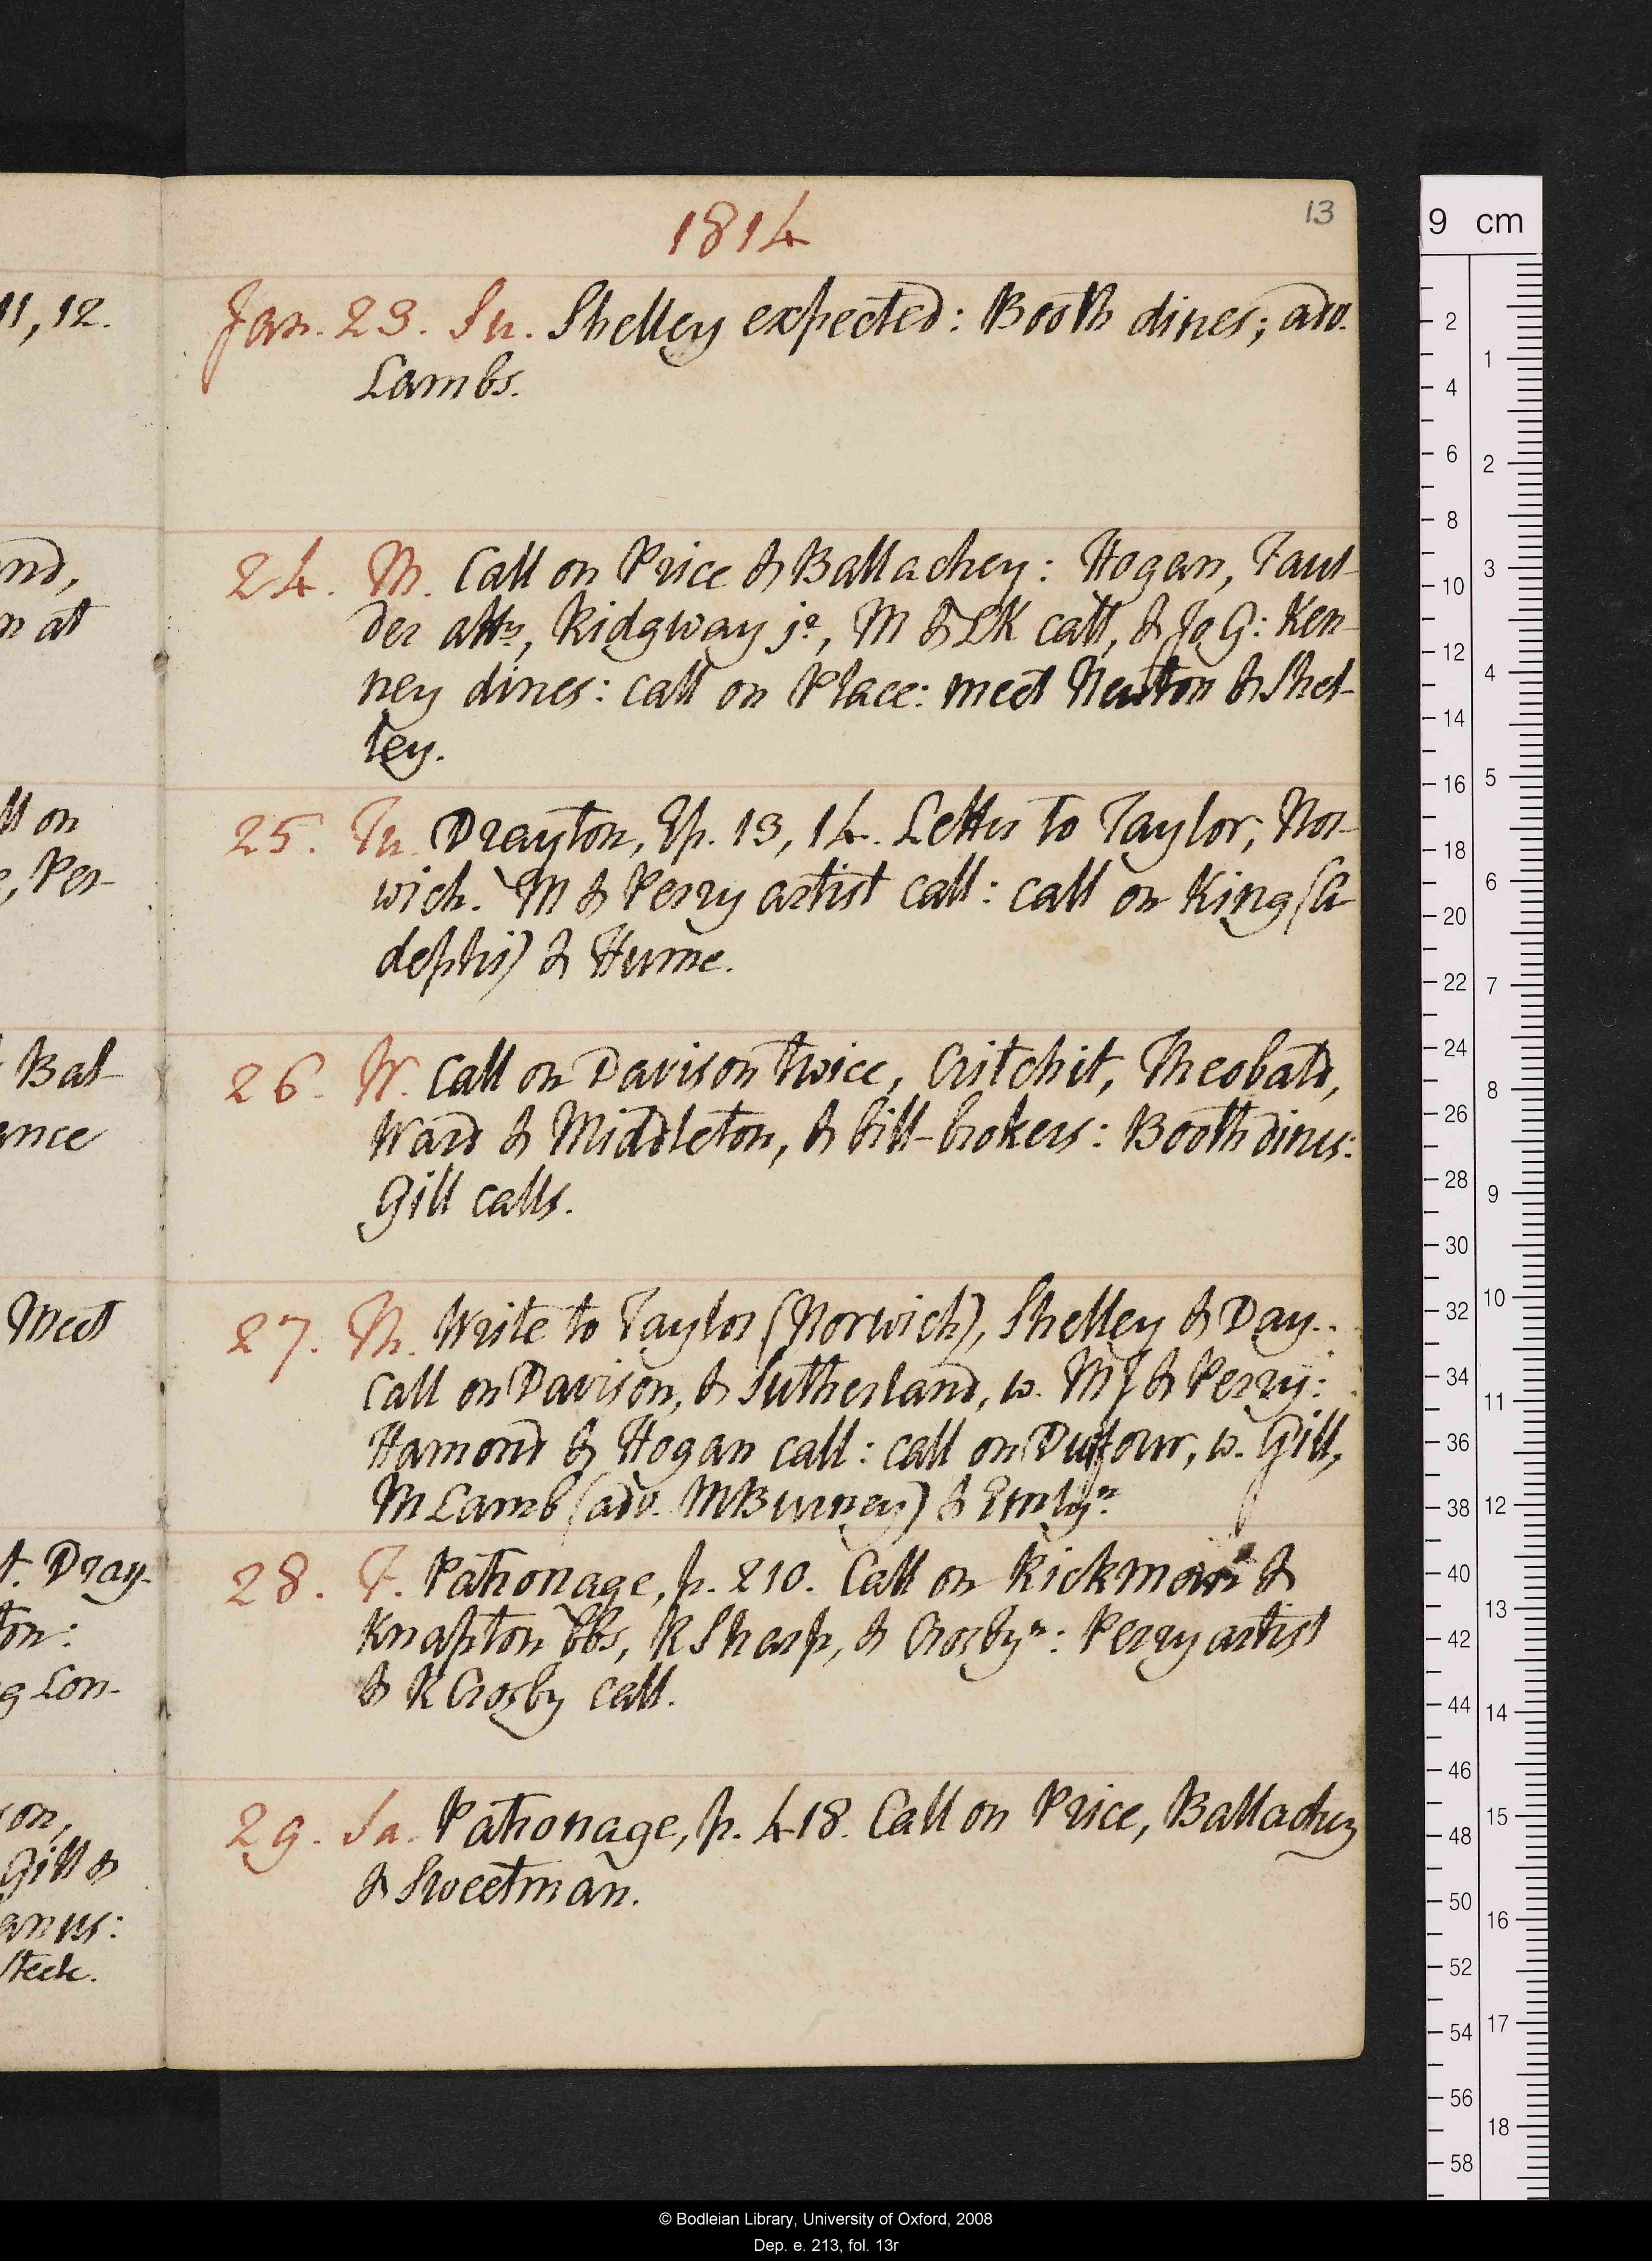 1814
13
11, 12.
nd,
n at
ll on
e, Per-
Bal-
ance
Meet
t. Dray-
ton:
g Lon-
on,
Gill &
anus:
Steele.
Jan. 23. Su. Shelley expected: Booth dines; adv.
Lambs.
24. M. Call on Price & Ballachey: Hogan, Taul-
der atty, Ridgway jr, M & LK call, & Jo G: Ken-
ney dines: call on Place: meet Newton & Shel-
ley.
25. Tu. Drayton, Ep. 13, 14. Letter to Taylor, Nor-
wich. M & Perry artist call: call on King (A-
delphi) & Hume.
26. W. Call on Davison twice, Critchit, Theobald,
Ward & Middleton, & bill-brokers: Booth dines:
Gill calls.
27. Th. Write to Taylor (Norwich), Shelley & Day.
Call on Davison, & Sutherland, w. MJ & Perry:
Hamond & Hogan call: call on Dufour, w. Gill,
M Lamb (adv. M Burney) & Emlyn
28. F. Patronage, p. 210. Call on Rickman &
Knapton bbs, R Sharp, & Crosby n: Perry artist
& R Crosby call.
29. Sa. Patronage, p. 418. Call on Price, Ballachey
& Sweetman.
9 cm
2
4
6
8
10
12
14
16
18
20
22
24
26
28
30
32
34
36
38
40
42
44
46
48
50
52
54
56
58
1
2
3
4
5
6
7
8
9
10
11
12
13
14
15
16
17
18
© Bodleian Library, University of Oxford, 2008
Dep. e. 213, fol. 13r